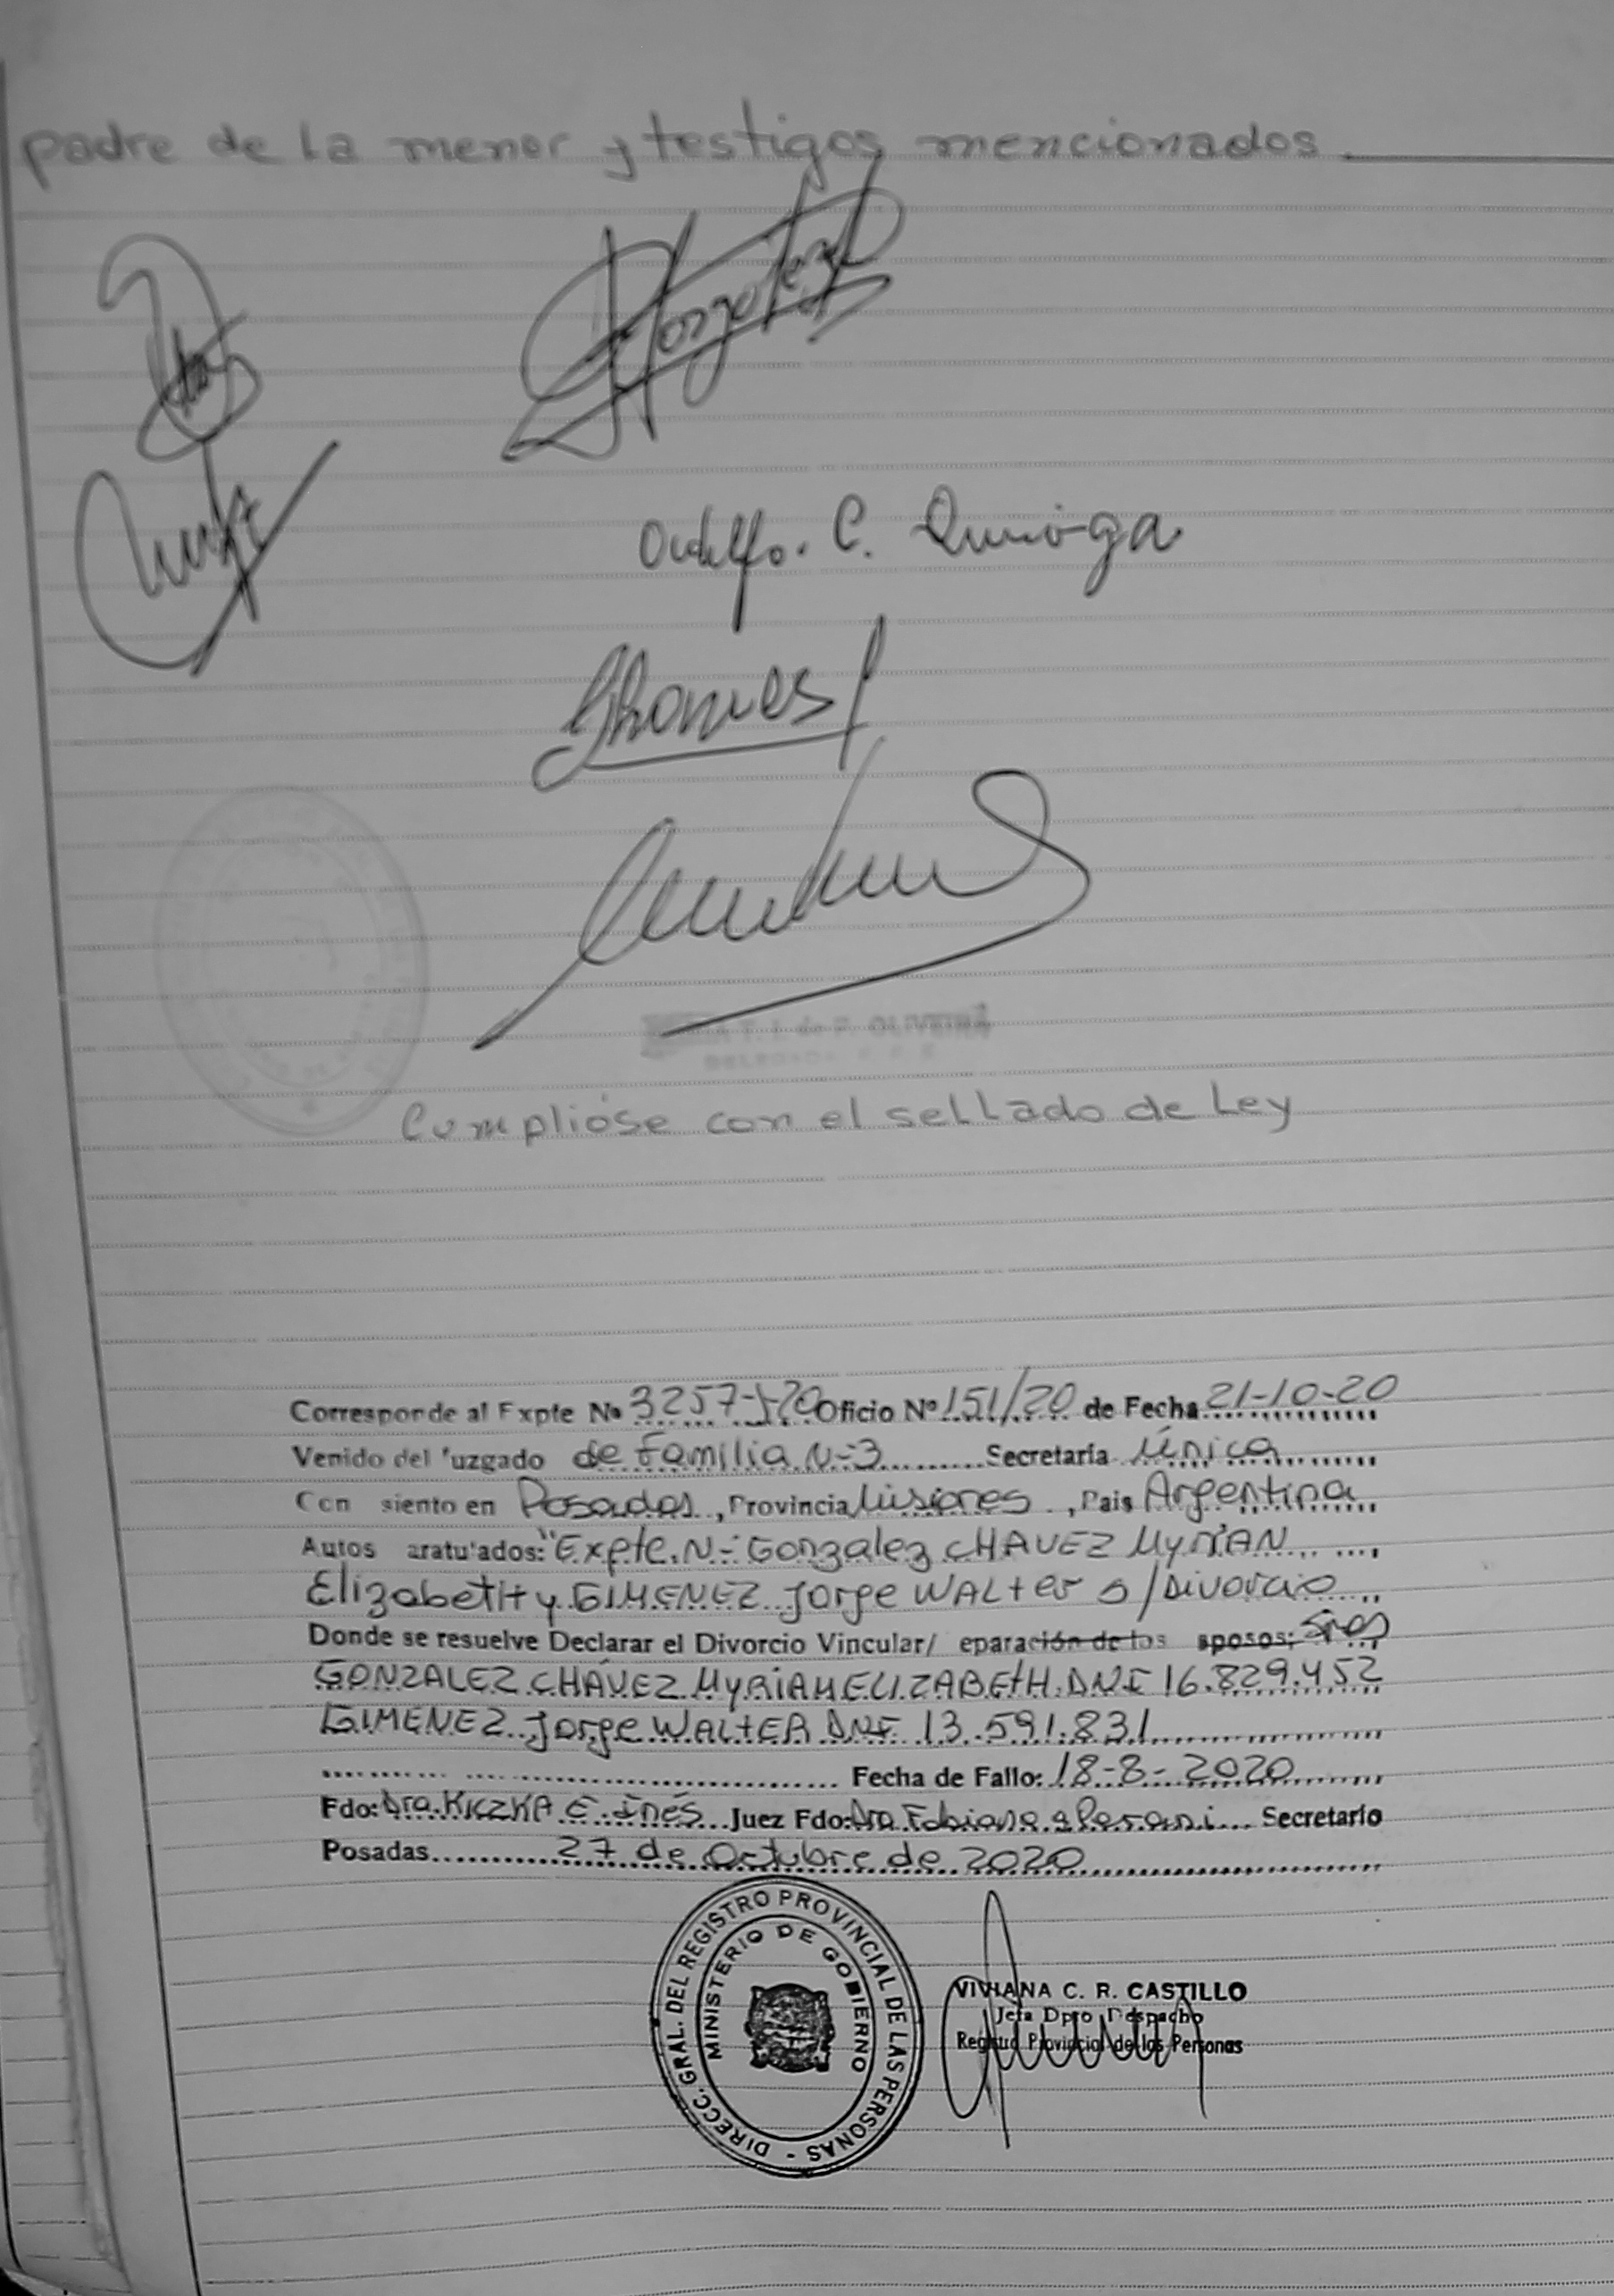 padre de la menor y testigos mencionados.
C. Quiroga
OLIVEIRA
Cumplióse con el sellado de Ley
Corresponde al Expte No 3257- /20 Oficio Nº 151/20 de Fecha 21-10-20
Venido del uzgado de Familia N-3 Secretaría Única
Ccn siento en Posadas, Provincia Misiones, Pais Argentina
Autos aratu'ados: "Expte. N- Gonzalez CHAVEZ Myrian
Elizabeth y GIMENEZ Jorge WALter s/Divorcio
Donde se resuelve Declarar el Divorcio Vincular/ eparación de los sposos; Sres
GONZALEZ CHÁVEZ MYRIAM ELIZABEtH. DNI 16.829.452
GIMENEZ Jorge WALtER DNI 13.591.831
Fecha de Fallo: 18-8-2020
Fdo: Dra. KICZKA E. Inés Juez Fdo: Dra Fabiana Secretario
Posadas 27 de Octubre de 2020
DIRECC. GRAL. DEL REGISTRO PROVINCIAL DE LAS PERSONAS -
MINISTERIO DE GOBIERNO
VIVIANA C. R. CASTILLO
Jefa Dpto Despacho
Registro Provincial de las Personas